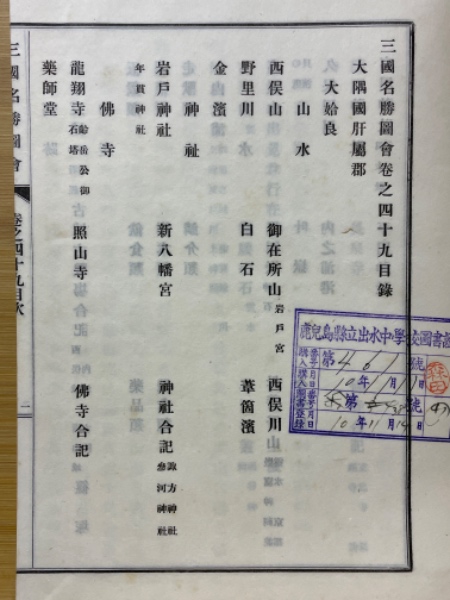 三國名勝圖會卷之四十九目錄
大隅國肝屬郡
大姶良
山水
西俣山 御在所山 岩戸宮 西俣川
野里川 白石 葦箇濱
金濱
神社
岩戸神社 新八幡宮 神社合記 諏方神社
年貫神社
佛寺
龍翔寺 齡岳公御石塔 照山寺 佛寺合記
藥師堂
三國名勝圖會 卷之四十九目次 二
鹿兒島縣立出水中學校圖書
第461號
10年11月1日
第 號
10年11月14日